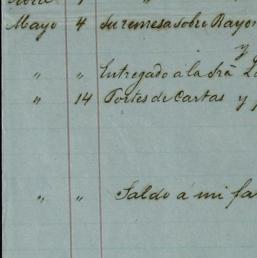 Mayo 4 Su remesa sobre Bayon
y
" " Entregado a la Srã
" 14 Portes de Cartas y
" " Saldo á mi fa